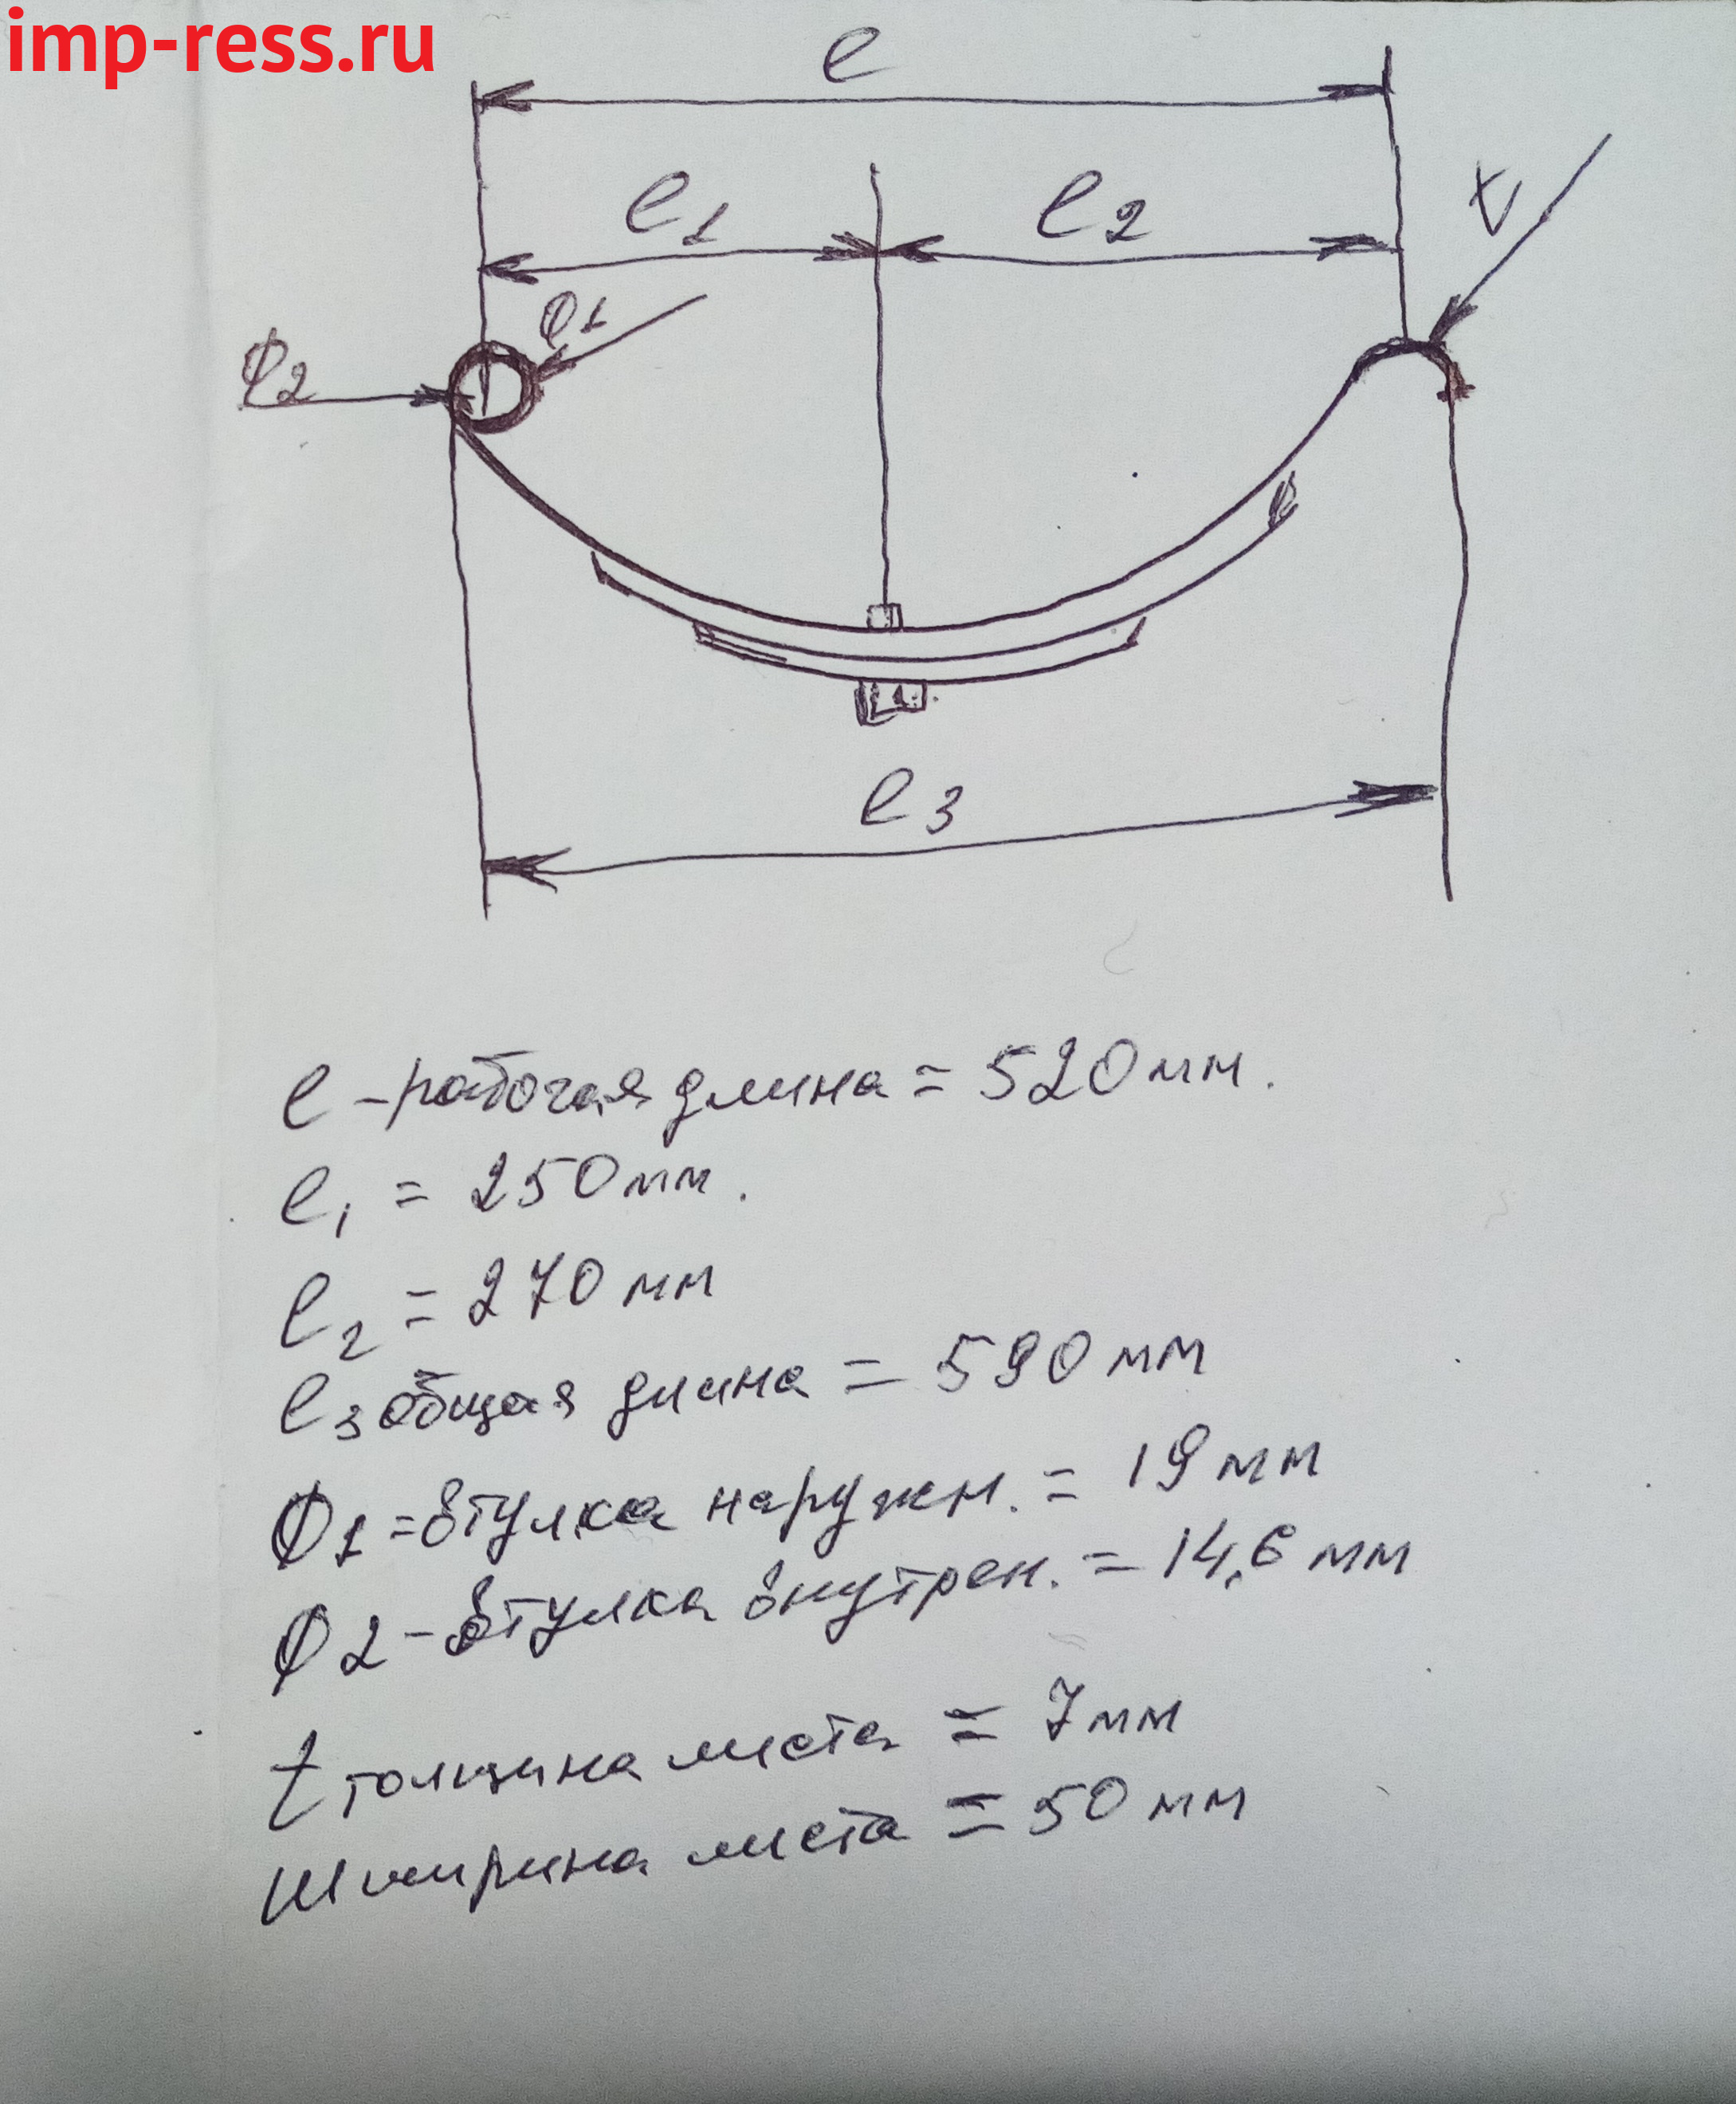 imp-ress.ru
e
e1 e2 t
Ф1
Ф2
e3
e - рабочая длина = 520 мм.
e1 = 250 мм.
e2 = 270 мм
e3 общая длина = 590 мм
Ф1 = втулка наружн. = 19 мм
Ф2 - втулка внутрен. = 14,6 мм
t толщина листа = 7 мм
Ширина листа = 50 мм